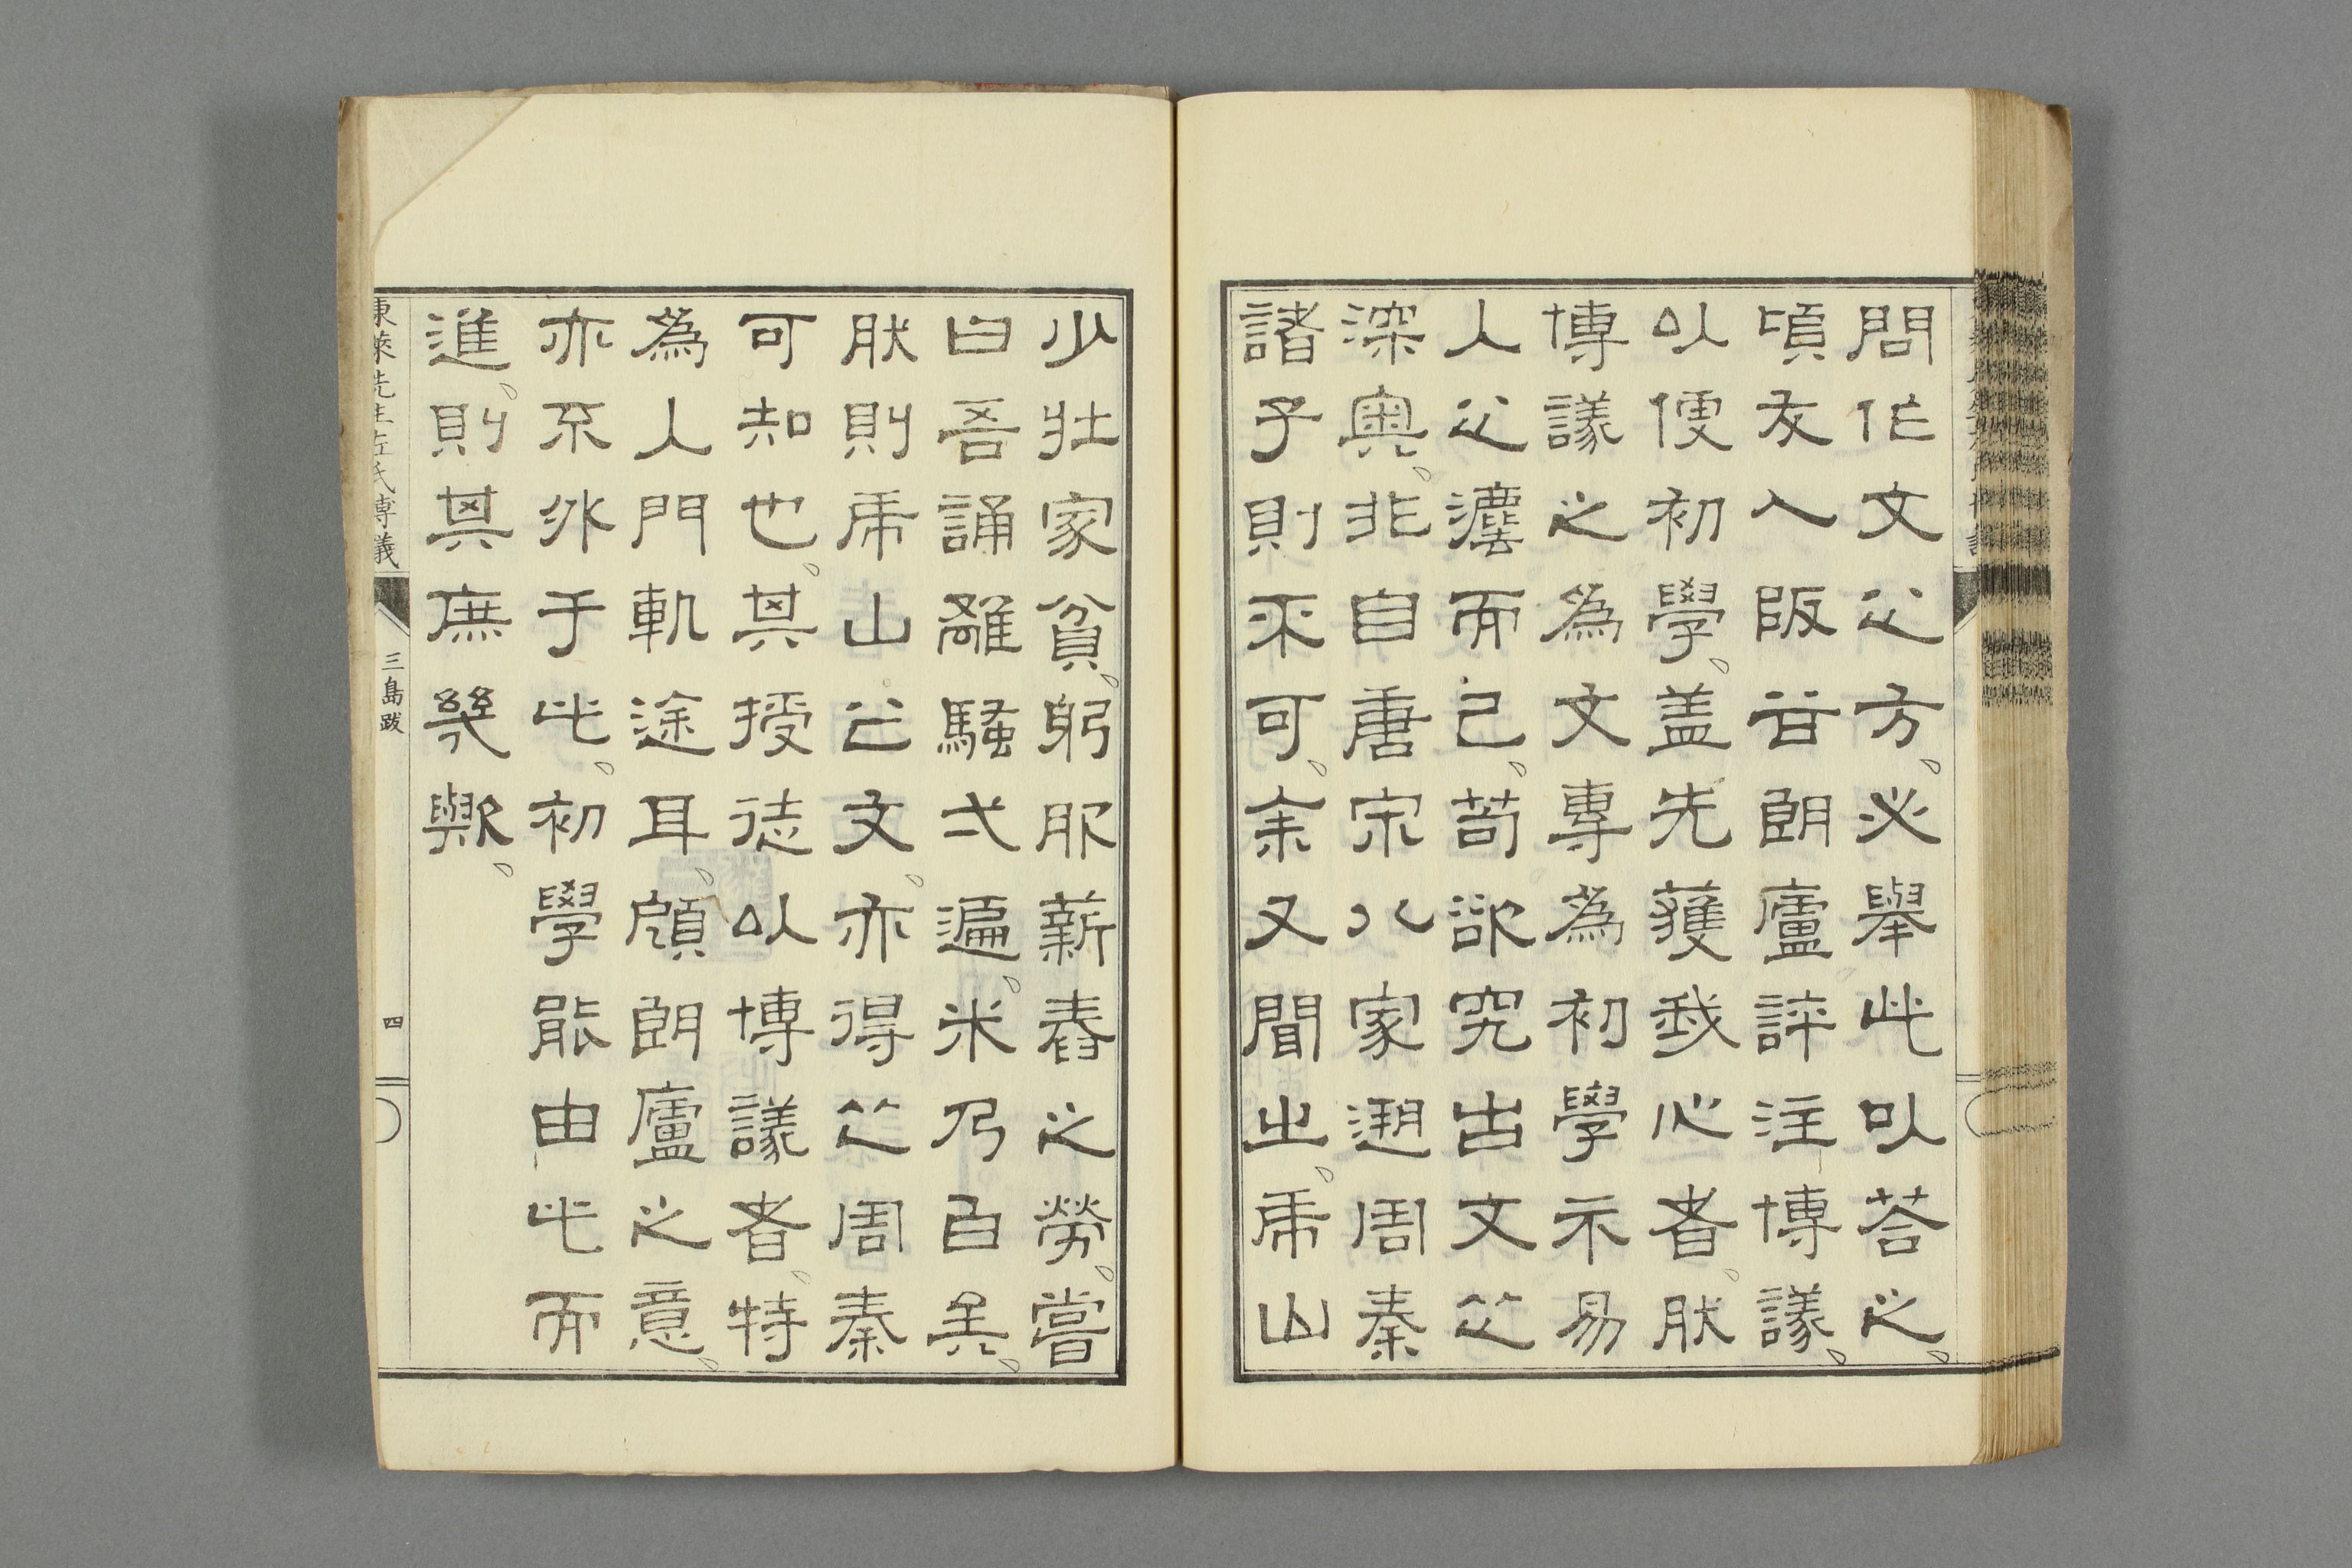 問作文之方、必舉此以荅之、
頃友人阪谷朗廬評注博議、
以便初學、蓋先獲我心者、然
博議之為文專為初學示易
入之灋而已、苟欲究古文之
深奧、非自唐宋八家遡周秦
諸子則不可、余又聞之、虎山
少壯家貧、躬服薪舂之勞、嘗
曰吾誦離騷弌遍、米乃白矣、
然則虎山之文、亦得之周秦
可知也、其授徒以博議者、特
為入門軌途耳、顧朗廬之意、
亦不外于此、初學能由此而
進、則其庶幾歟、
東萊先生左氏博議
三島跋
四